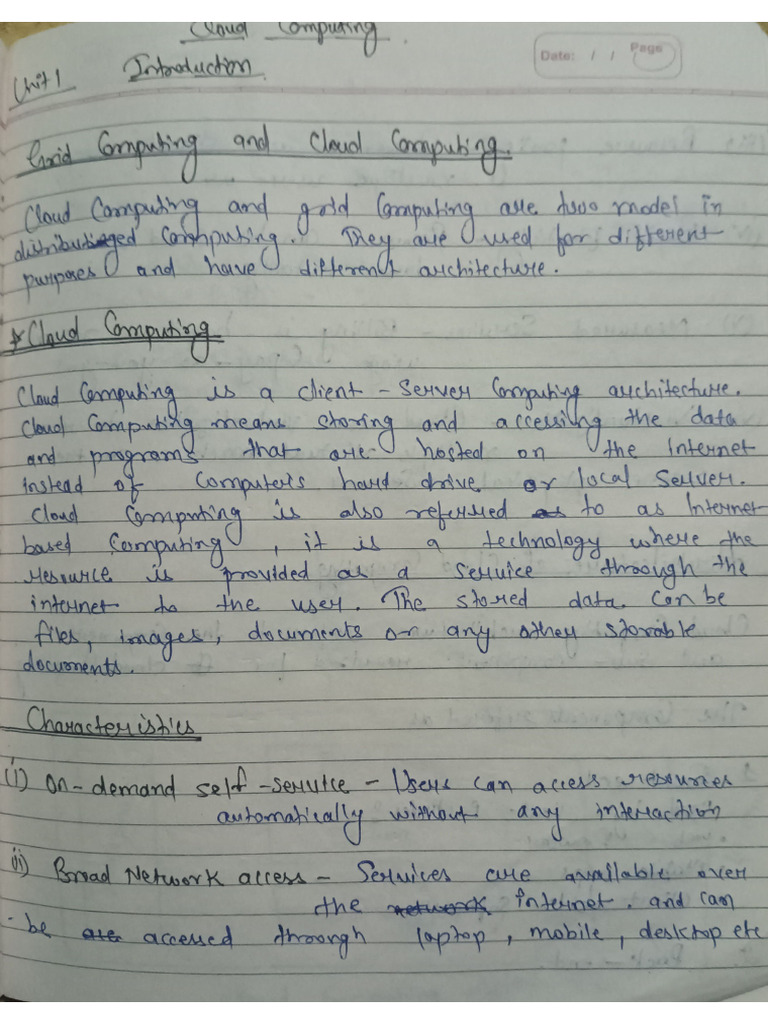 Cloud Computing.
Date: / / Page
Unit 1 Introduction
Grid Computing and Cloud Computing.
Cloud Computing and grid Computing are two model in
distributinged Computing. They are used for different
purposes and have different architecture.
* Cloud Computing
Cloud Computing is a client - Server Computing architecture.
Cloud Computing means storing and accessing the data
and programs that are hosted on the Internet
instead of Computers hard drive or local Server.
Cloud Computing is also referred as to as Internet
based Computing, it is a technology where the
resource is provided as a service through the
internet to the user. The stored data can be
files, images, documents or any other storable
documents.
Characteristics
(i) On-demand self-service - Users can access resources
automatically without any interaction
ii) Broad Network access - Services are available over
the network internet. and can
be are accessed through laptop, mobile, desktop etc